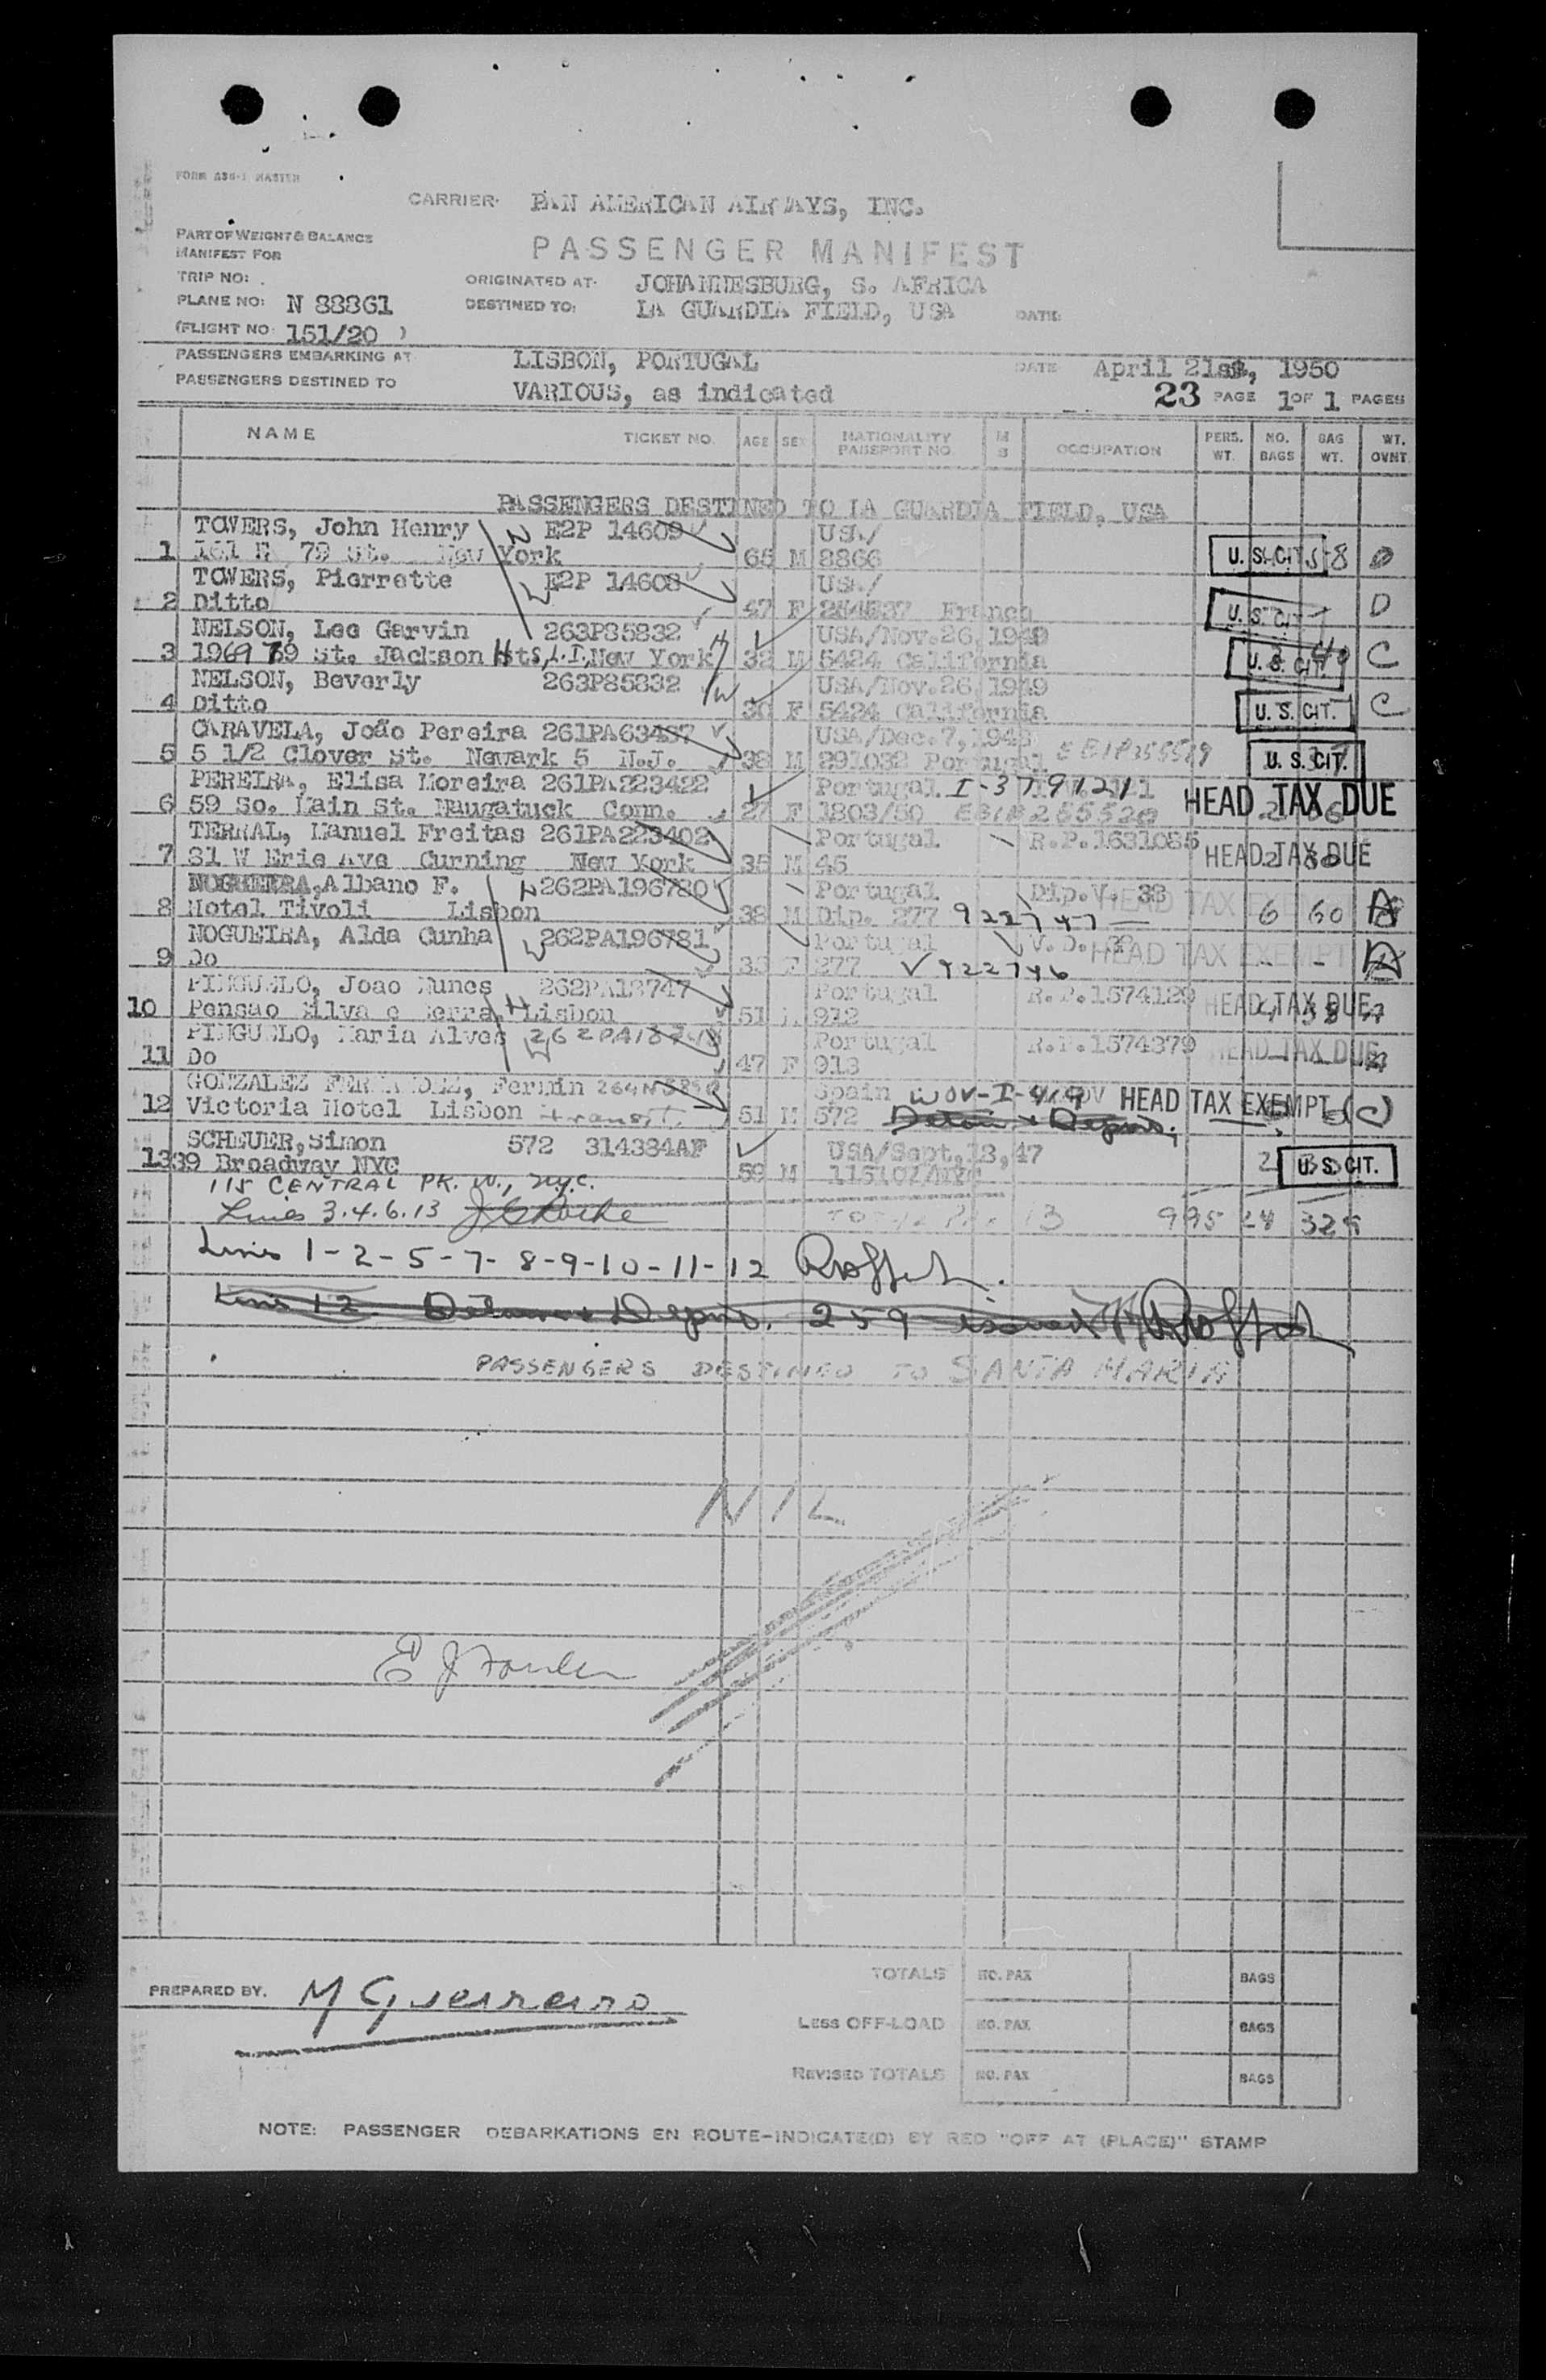 FORM ASN-1 MASTER
CARRIER: PAN AMERICAN AIRWAYS, INC.
PART OF WEIGHT & BALANCE
MANIFEST FOR
PASSENGER MANIFEST
TRIP NO:
ORIGINATED AT: JOHANNESBURG, S. AFRICA
PLANE NO: N 88861
DESTINED TO: LA GUARDIA FIELD, USA DATE:
(FLIGHT NO: 151/20 )
PASSENGERS EMBARKING AT LISBON, PORTUGAL DATE April 21st, 1950
PASSENGERS DESTINED TO VARIOUS, as indicated 23 PAGE 1 OF 1 PAGES
NAME TICKET NO. AGE SEX NATIONALITY PASSPORT NO. M S OCCUPATION PERS. WT. NO. BAGS BAG WT. WT. OVNT.
PASSENGERS DESTINED TO LA GUARDIA FIELD, USA
TOWERS, John Henry E2P 14609 USA/
1 79 St. New York 65 M 8866 U.S. CIT. D
TOWERS, Pierrette E2P 14608 USA/
2 Ditto 47 F France U.S. CIT. D
NELSON, Lee Garvin 263P85832 USA/Nov.26,1949
3 1969 79 St. Jackson Hts, L.I. New York 32 M 5424 California U.S. CIT. C
NELSON, Beverly 263P85832 USA/Nov.26,1949
4 Ditto 30 F 5424 California U.S. CIT. C
CARAVELA, João Pereira 261PA63437 USA/Dec.7,1948
5 5 1/2 Clover St. Newark 5 N.J. 38 M 291032 Portugal U.S. CIT.
PEREIRA, Elisa Moreira 261PA223422 Portugal
6 59 So. Main St. Naugatuck Conn. 27 F 1803/50 HEAD TAX DUE
TERRAL, Manuel Freitas 261PA223402 Portugal R.P.1631085
7 81 W Erie Ave Curning New York 35 M 45 HEAD TAX DUE
NOGUEIRA, Albano F. 262PA196780 Portugal Dip.V. 38
8 Hotel Tivoli Lisbon 38 M Dip. 277 922747 HEAD TAX 6 60 A
NOGUEIRA, Alda Cunha 262PA196781 Portugal V.D.
9 Do F 277 922746 HEAD TAX EXEMPT A
PINGUELO, Joao Nunes 262PA18747 Portugal R.P.1574129
10 Pensao Silva e Serra, Lisbon 51 M 912 HEAD TAX DUE
PINGUELO, Maria Alves Portugal R.P.1574379
11 Do 47 F 913 HEAD TAX DUE
GONZALEZ FERNANDEZ, Fermin Spain
12 Victoria Hotel Lisbon transit. 51 M 572 HEAD TAX EXEMPT (C)
SCHEUER, Simon 572 314384AF USA/Sept,18,47
13 39 Broadway NYC 59 M U.S. CIT.
115 CENTRAL PK. W., NYC.
Lines 3.4.6.13 TOTAL PAX 13 995 24 329
Lines 1-2-5-7-8-9-10-11-12
Line 12 259 issued
PASSENGERS DESTINED TO SANTA MARIA
NIL
PREPARED BY. M Guerreiro
TOTALS NO. PAX BAGS
LESS OFF-LOAD NO. PAX BAGS
REVISED TOTALS NO. PAX BAGS
NOTE: PASSENGER DEBARKATIONS EN ROUTE-INDICATE(D) BY RED "OFF AT (PLACE)" STAMP